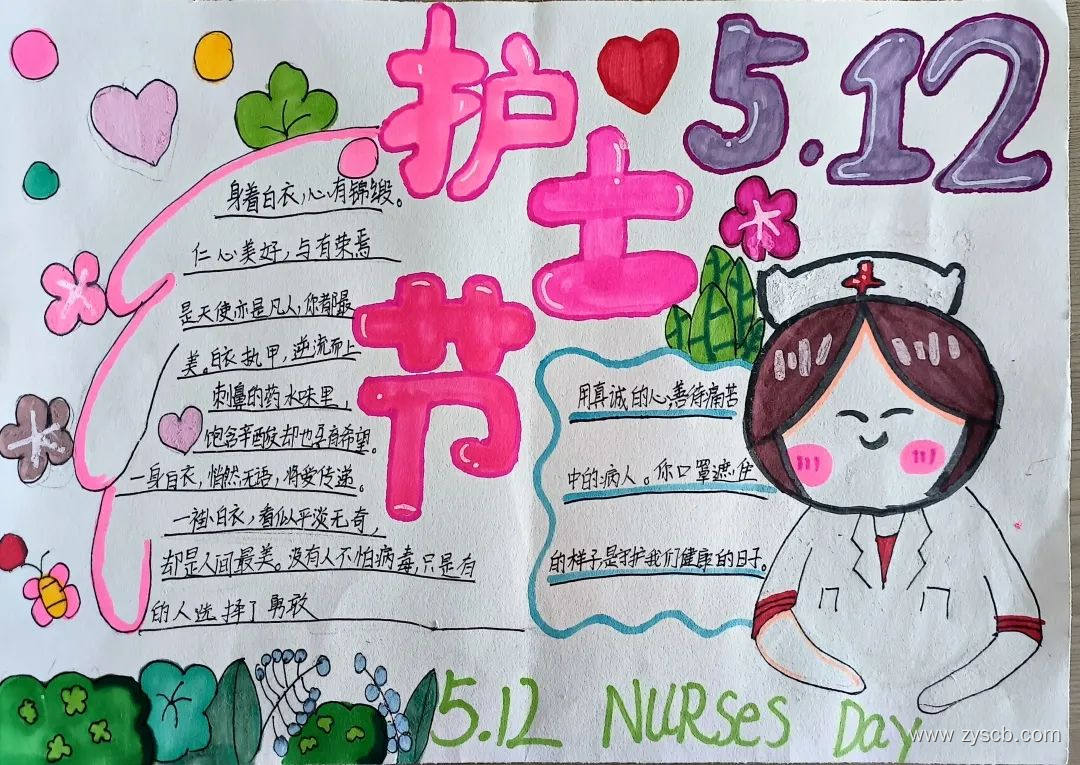 护士节
5.12
身着白衣，心有锦缎。
仁心美好，与有荣焉
是天使亦是凡人，你都最
美。白衣执甲，逆流而上
刺鼻的药水味里，
饱含辛酸却也孕育希望。
一身白衣，悄然无语，将爱传递。
一袖白衣，看似平淡无奇，
却是人间最美。没有人不怕病毒，只是有
的人选择了勇敢
用真诚的心善待痛苦
中的病人。你口罩遮住
的样子是守护我们健康的日子。
5.12 NURSes Day
www.zyscb.com